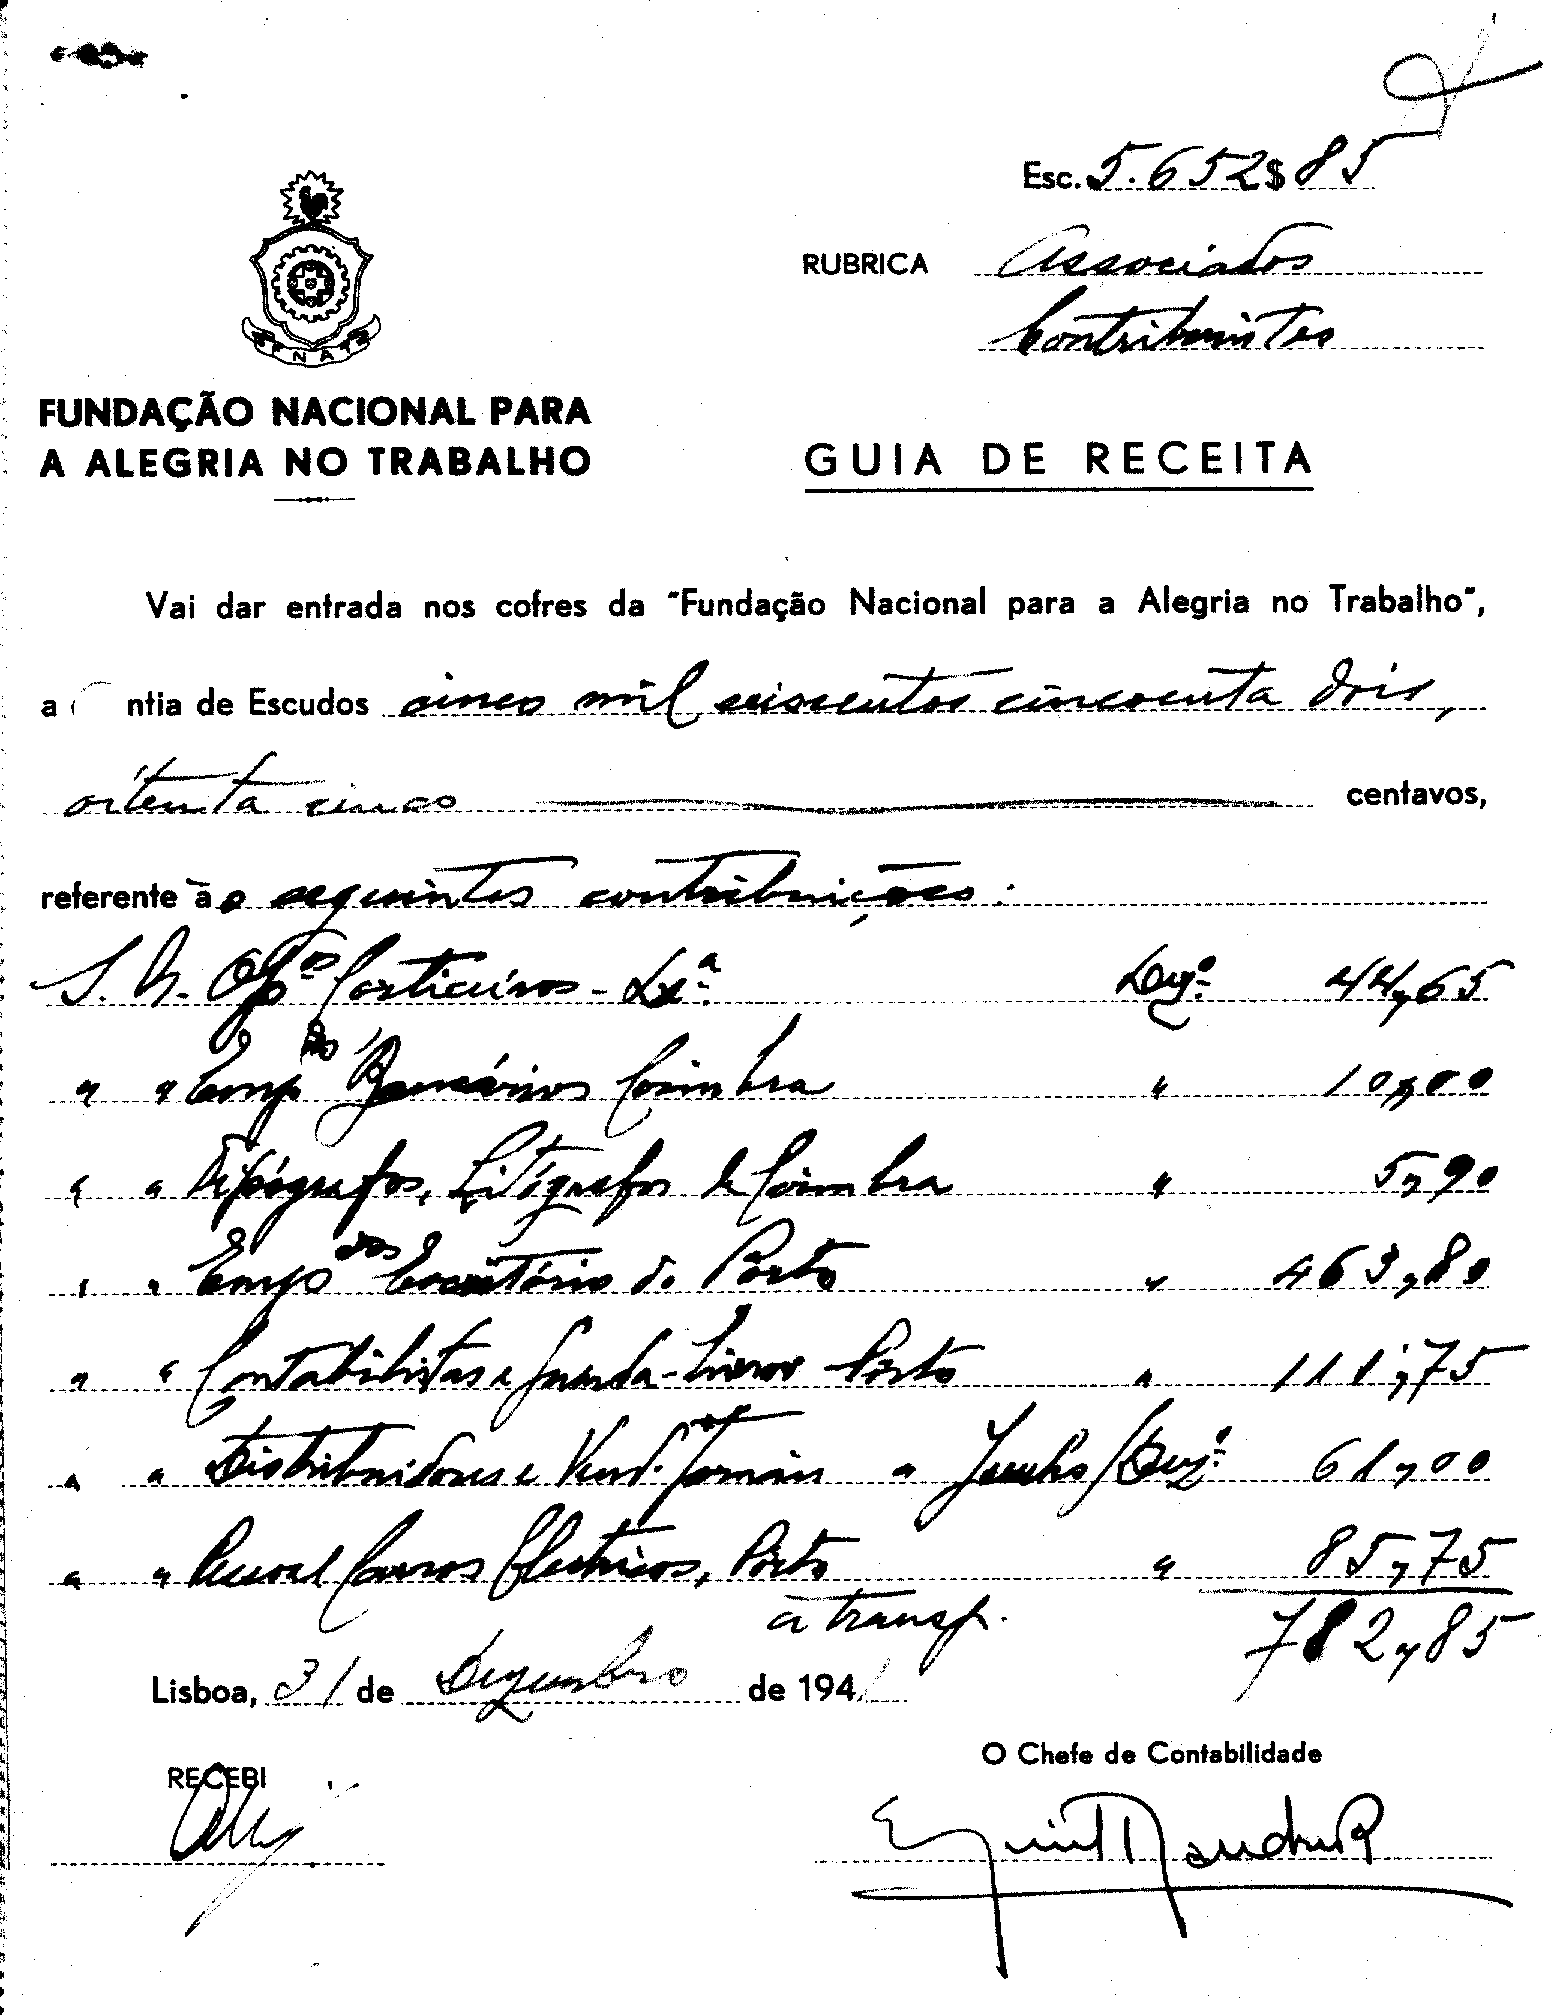 Esc. 5.652$85
RUBRICA Associados
Contribuintes
FNAT
FUNDAÇÃO NACIONAL PARA
A ALEGRIA NO TRABALHO
GUIA DE RECEITA
Vai dar entrada nos cofres da "Fundação Nacional para a Alegria no Trabalho",
a ntia de Escudos cinco mil seiscentos cincoenta dois,
oitenta cinco centavos,
referente às seguintes contribuições:
S. N. Op.os Corticeiros - Lx.ª Dez.º 44,65
" " Emp.dos Bancários Coimbra " 10,00
" " Tipógrafos, Litógrafos de Coimbra " 5,90
" " Emp.dos Escritório do Porto " 463,80
" " Contabilistas e Guarda-Livros Porto " 111,75
" " Distribuidores e Vend. Jornais " Junho/Dez.º 61,00
" " Pessoal Carros Electricos, Porto " 85,75
a transp. 782,85
Lisboa, 31 de Dezembro de 194
RECEBI
O Chefe de Contabilidade